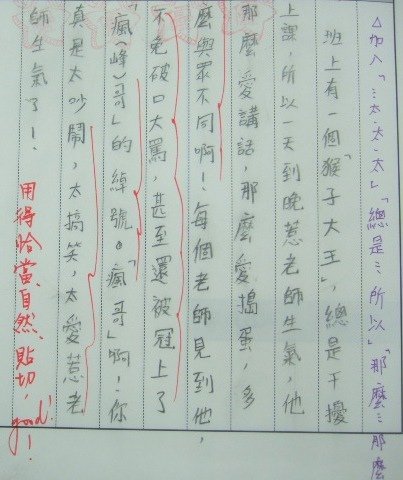 △加入「…太…太…太」「總是…所以」「那麼…那麼
班上有一個「猴子大王」,總是干擾
上課,所以一天到晚惹老師生氣,他
那麼愛講話,那麼愛搗蛋,多
麼與眾不同啊!每個老師見到他,
不免破口大罵,甚至還被冠上了
「瘋(峰)哥」的綽號。「瘋哥」啊!你
真是太吵鬧,太搞笑,太愛惹老
師生氣了!
用得恰當、自然、貼切,good!